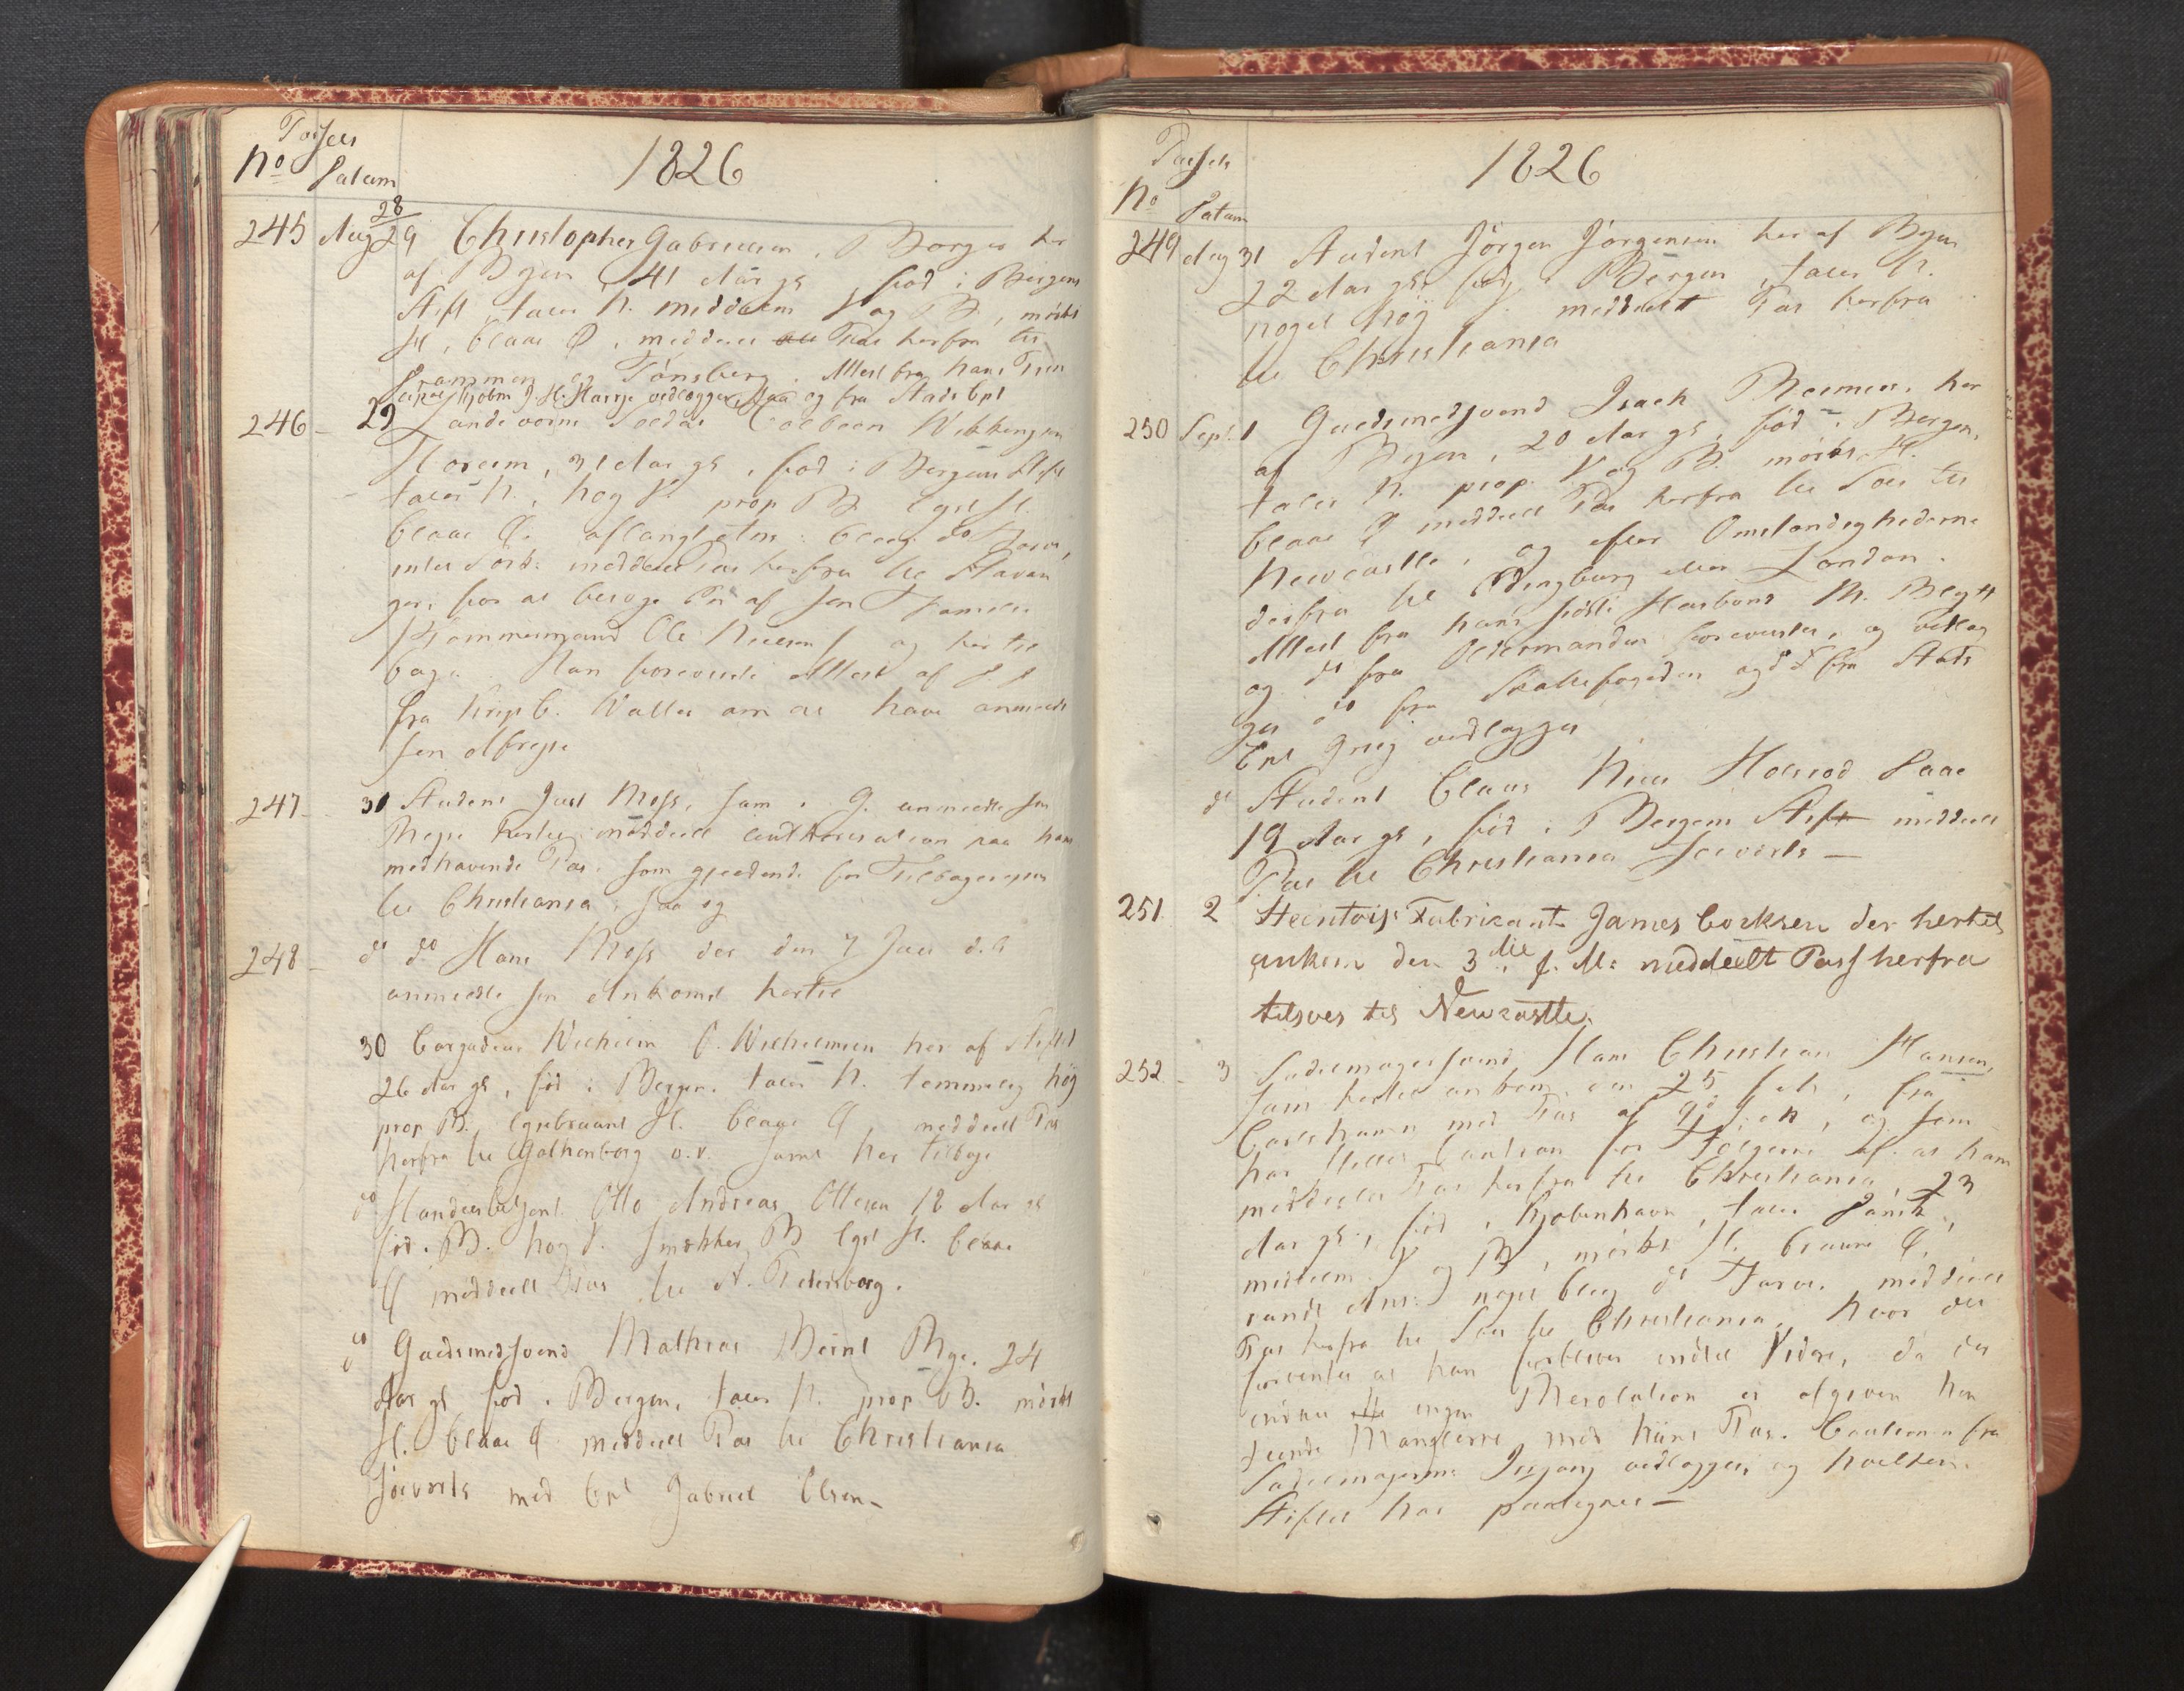 Passets
No Datum 1826
245 Aug 28/29 Christopher Gabrielsen, Borger her
af Byen 41 Aar gl, fød i Bergens
Stift, taler N. middelm V og B, mørkt
H, blaae Ø, meddeelt Pas herfra til
Drammen og Tønsberg. Attest fra hans
Kjøbm J. H. vedlægges, og fra Stads Cpt
246 29 Landeværns Soldat Colbeen Wikkingsen
31 Aar gl, fød i Bergens Stift
taler N., høg V. prop B lyst H.
blaae Ø. aflangt Ans: bleeg do Farve,
meddeelt Pas herfra til Stavan
ger, for at besøge En af sin Familie
Ole Nielsen og her til
bage. Han foreviste Attest af D D
fra Krigs C. Valter om at have anmeldt
sin Afreyse
247 30 Student Just Moss, som i G. anmeldte sin
Reyse hertil, meddeelt authorisation paa hans
medhavende Pas som gjældende for Tilbagereysen
til Christiania, saa og
248 do do Hans Moss der den 7 Juli d. A
anmeldte sin Ankomst hertil
30 Cargadeur Wilhelm C. Wilhelmsen her af Stiftet
26 Aar gl, fød i Bergen, taler N. temmelig høg
prop B. lysebruunt H. blaae Ø, meddeelt Pas
herfra til Gothenborg o.v. samt her tilbage
do Handelsbetjent Otto Andreas Ottesen 18 Aar gl
fød i B. høg V. smekker B lyst H. blaae
Ø meddeelt Pas til St. Petersborg.
do Guldsmedsvend Mathias Bernt Brge. 24
Aar gl fød i Bergen, taler N. prop B. mørkt
H. blaae Ø meddeelt Pas til Christiania
søeværts med Cpt Gabriel Olsen –
Passets
No Datum 1826
249 Aug 31 Student Jörgen Jörgensen her af Byen
22 Aar gl, fød i Bergen, taler N.
noget høg V. meddeelt Pas herfra
til Christiania
250 Sept. 1 Guldsmedsvend Isach Reimers, her
af Byen, 20 Aar gl, fød i Bergen,
taler N. prop. V og B. mørkt H.
blaae Ø meddeelt Pas herfra til Søes til
Newcastle, og efter Omstændighederne
derfra til Edingburg eller London.
Attest fra hans sidste Huusbond M. Blytt
og do fra Oldermanden forevistes, og vedlæg
ges do fra Skattefogden og do fra Stads
Cpt Grieg vedlægges
do Student Claus Niels Holsrod Daae
19 Aar gl, fød i Bergens Stift meddeelt
Pas til Christiania søeværts –
251 2 Steentøis Fabricant James Corksen der hertil
ankom den 3die f. M: meddeelt Pass herfra
tilsøes til Newcastle.
252 3 Sadelmagersvend Hans Christian Hansen,
som hertil ankom den 25 Juli, fra
Carlshamn med Pas af 9de s. M, og som
har stillet Caution for Følgerne af at ham
meddeeles Pas herfra til Christiania, 23
Aar gl, fød i Kjøbenhavn, taler Dansk,
middelm V og B, mørkt H. bruune Ø,
rundt Ans: noget bleg do Farve. meddeelt
Pas herfra til Søes til Christiania, hvor det
forventes at han forbliver indtil Videre, da der
endnu ingen Resolution er afgiven hen
seende Manglerne med hans Pas. Cautionen fra
Sadelmagernes Ingang vedlægges, og hvilken
Stiftet har paategnet –